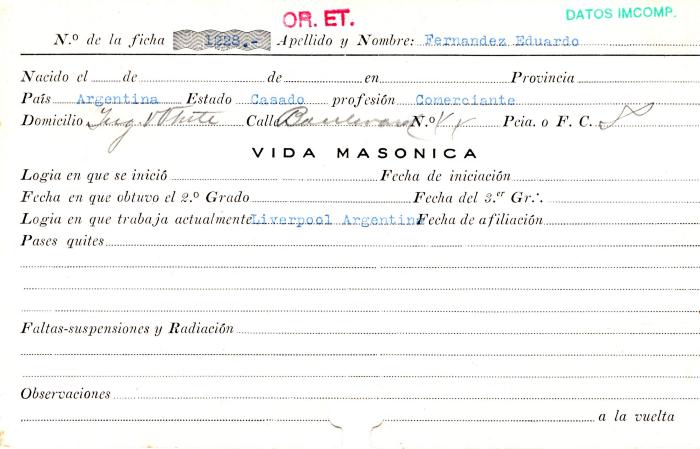 OR. ET.
DATOS IMCOMP.
N.º de la ficha 1228.- Apellido y Nombre: Fernandez Eduardo
Nacido el de de en Provincia
País Argentina Estado Casado profesión Comerciante
Domicilio Ing. White Calle N.º Pcia. o F. C.
VIDA MASONICA
Logia en que se inició Fecha de iniciación
Fecha en que obtuvo el 2.º Grado Fecha del 3.er Gr∴
Logia en que trabaja actualmente Liverpool Argentina Fecha de afiliación
Pases quites
Faltas-suspensiones y Radiación
Observaciones
a la vuelta